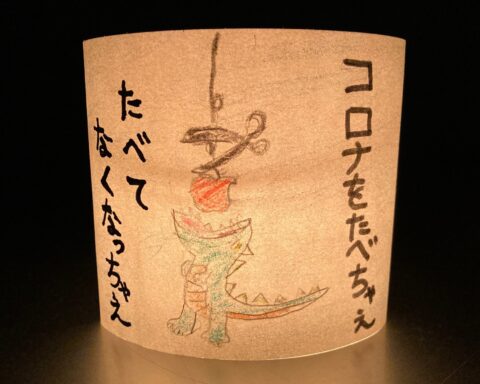 コロナをたべちゃえ
たべて
なくなっちゃえ